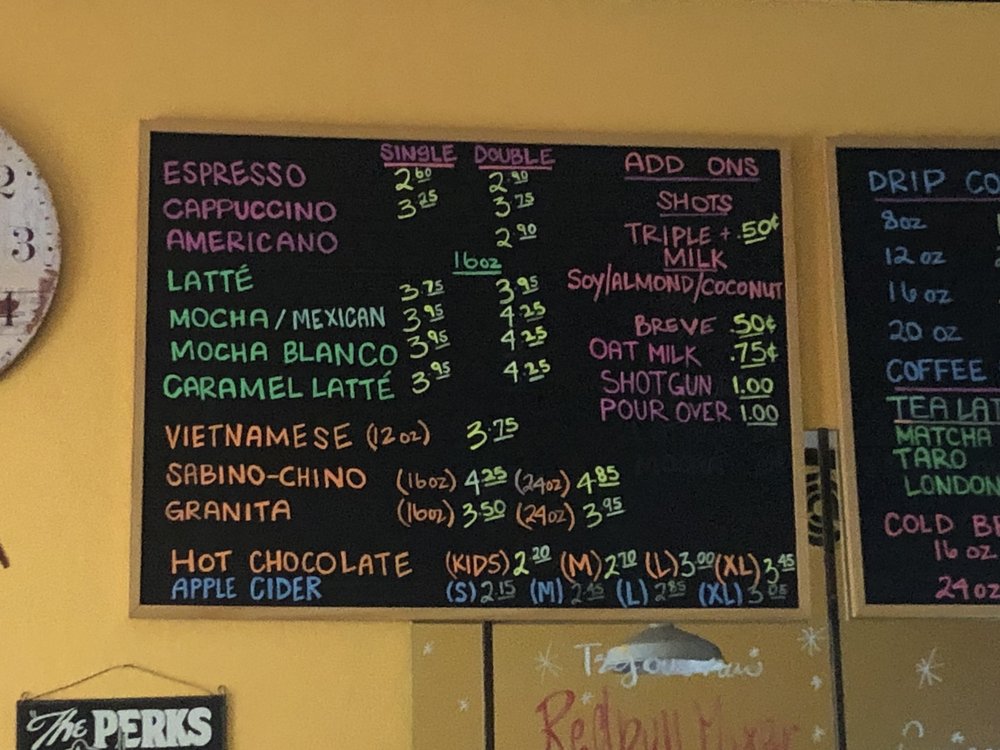 SINGLE DOUBLE
ESPRESSO 2.60 2.90
CAPPUCCINO 3.25 3.75
AMERICANO 2.90
16oz
LATTÉ 3.75 3.95
MOCHA/MEXICAN 3.95 4.25
MOCHA BLANCO 3.95 4.25
CARAMEL LATTÉ 3.95 4.25
VIETNAMESE (12oz) 3.75
SABINO-CHINO (16oz) 4.25 (24oz) 4.85
GRANITA (16oz) 3.50 (24oz) 3.95
HOT CHOCOLATE (KIDS) 2.20 (M) 2.70 (L) 3.00 (XL) 3.45
APPLE CIDER (S) 2.15 (M) (L) 2.85 (XL)
ADD ONS
SHOTS
TRIPLE + .50¢
MILK
SOY/ALMOND/COCONUT
BREVE .50¢
OAT MILK .75¢
SHOTGUN 1.00
POUR OVER 1.00
DRIP CO
8oz
12 oz
16 oz
20 oz
COFFEE
TEA LAT
MATCHA
TARO
LONDON
COLD B
16 oz
24oz
2
3
4
The PERKS
Redbull